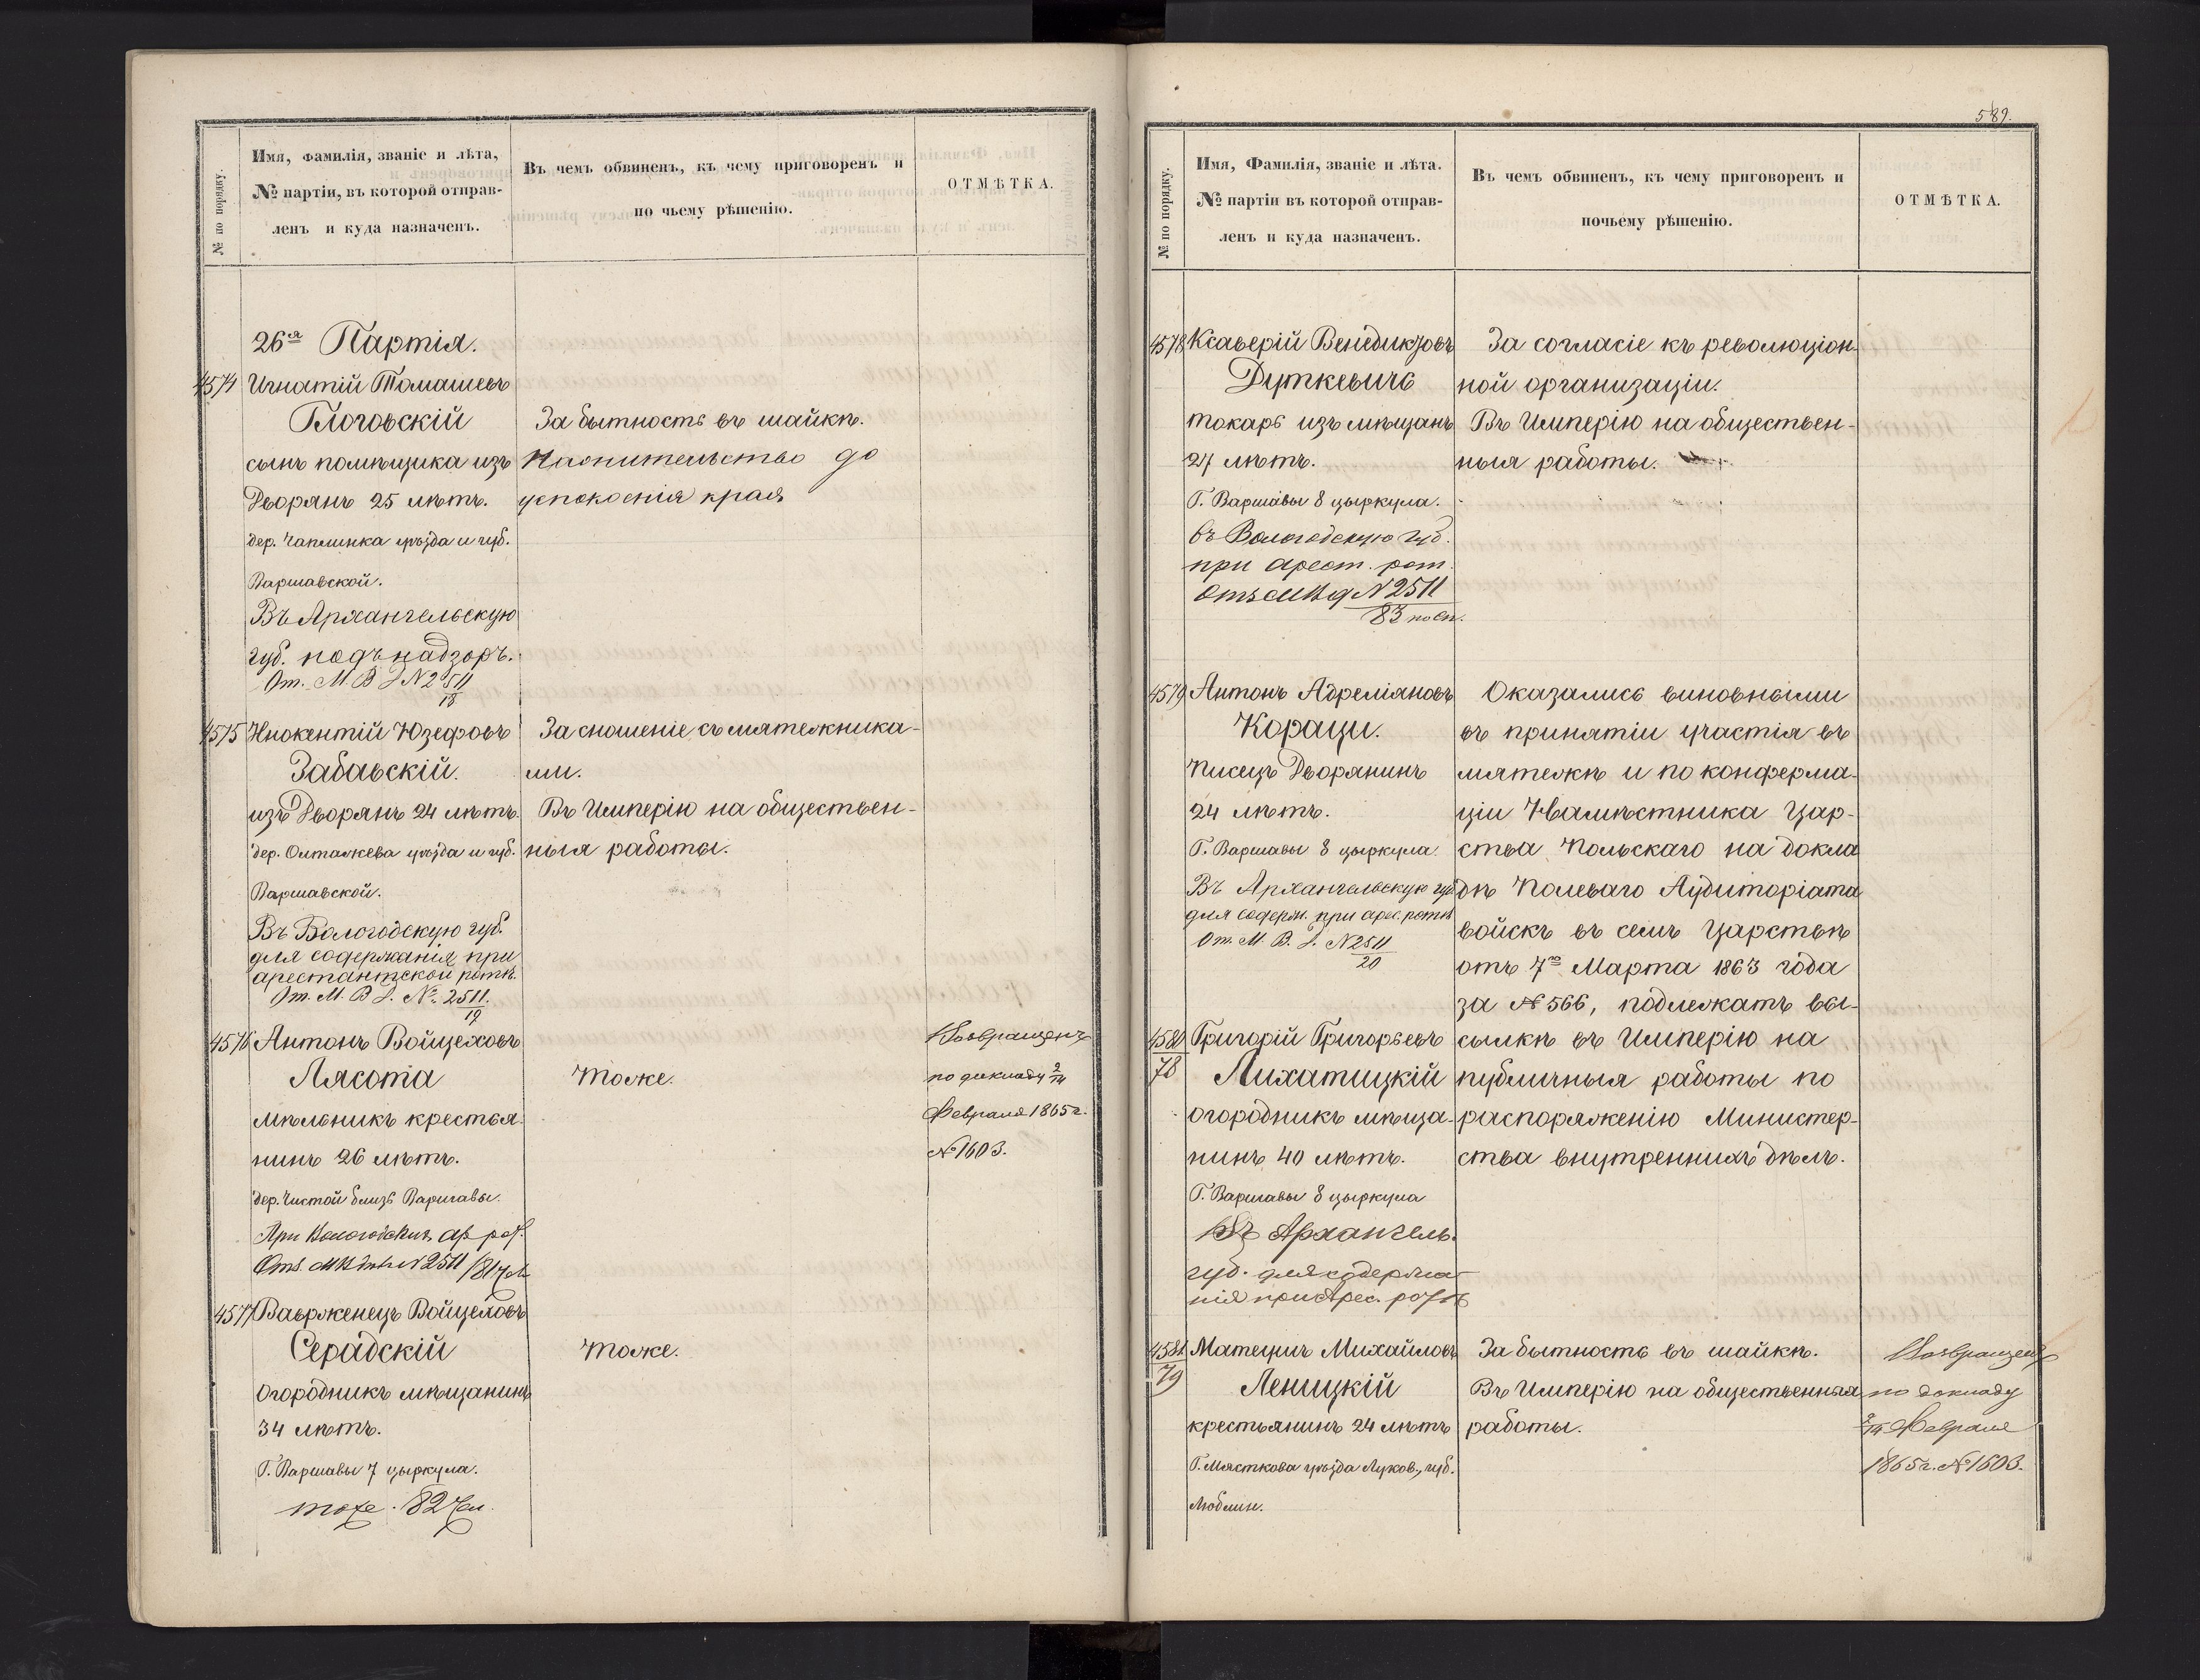 № по порядку.
Имя, фамилія, званіе и лѣта,
№ партіи, въ которой отправ-
ленъ и куда назначенъ.
Въ чемъ обвиненъ, къ чему приговоренъ и
по чьему рѣшенію.
ОТМѢТКА.
26я Партія.
4574 Игнатій Томашевъ
Глоговскій
сынъ помѣщика изъ
Дворянъ 25 лѣтъ.
дер. Чаплинка уѣзда и губ.
Варшавской.
Въ Архангельскую
губ. подъ надзоръ.
От. М. В. Д. N 2511
18
За бытность въ шайкѣ.
до
успокоенія края
4575 Инокентій Юзефовъ
Забавскій.
изъ Дворянъ 24 лѣтъ.
дер. Олтажева уѣзда и губ.
Варшавской.
Въ Вологодскую губ.
для содержанія при
арестантской ротѣ.
От. М. В. Д. №. 2511.
19
За сношеніе съ мятежника-
ми.
Въ Имперію на обществен-
ныя работы.
4576 Антонъ Войцеховъ
Лясота
мѣльникъ крестья-
нинъ 26 лѣтъ.
дер. Чистой близъ Варшавы.
При Вологодских. ар. рот.
От. N 2511/81
Тоже.
Возвращенъ
по докладу 2/14
Февраля 1865 г.
№ 1603.
4577 Вавржецъ Войцеховъ
Серадскій
Огородникъ мѣщанинъ
34 лѣтъ.
Г. Варшавы 7 цыркула.
тоже. 82
Тоже.
589.
№ по порядку.
Имя, Фамилія, званіе и лѣта.
№ партіи въ которой отправ-
ленъ и куда назначенъ.
Въ чемъ обвиненъ, къ чему приговоренъ и
почьему рѣшенію.
ОТМѢТКА.
4578 Ксаверій Венедиктовъ
Дуткевичъ
токарь изъ мѣщанъ
27 лѣтъ.
Г. Варшавы 8 цыркула.
въ Вологодскую губ.
при арест. рот.
Отъ М В Д N 2511
83 по сп.
За согласіе къ революціон-
ной организаціи.
Въ Имперію на обществен-
ныя работы.
4579 Антонъ Адреліяновъ
Кораци.
Писецъ Дворянинъ
24 лѣтъ.
Г. Варшавы 8 цыркула.
Въ Архангельскую губ.
для содерж. при арес. ротѣ
От. М. В. Д. N 2511
20
Оказались виновными
въ принятіи участія въ
мятежѣ и по конферма-
ціи Намѣстника Цар-
ства Польскаго на докла
дѣ Полеваго Аудиторіата
войскъ въ семъ Царствѣ
отъ 7го Марта 1863 года
за № 566, подлежатъ вы-
сылкѣ въ Имперію на
публичныя работы по
распоряженію Министер-
ства внутреннихъ дѣлъ.
4580 Григорій Григорьевъ
78 Лихатицкій
огородникъ мѣща-
нинъ 40 лѣтъ.
Г. Варшавы 8 цыркула
Въ Архангель.
губ. для содержа-
нія при Арес. ротѣ
4581 Матеушъ Михайловъ
79 Леницкій
крестьянинъ 24 лѣтъ
Г. Мясткова уѣзда Луков., губ.
Люблин.
За бытность въ шайкѣ.
Въ Имперію на общественныя
работы.
Возвращенъ
по докладу
2/14 Февраля
1865 г. № 1603.